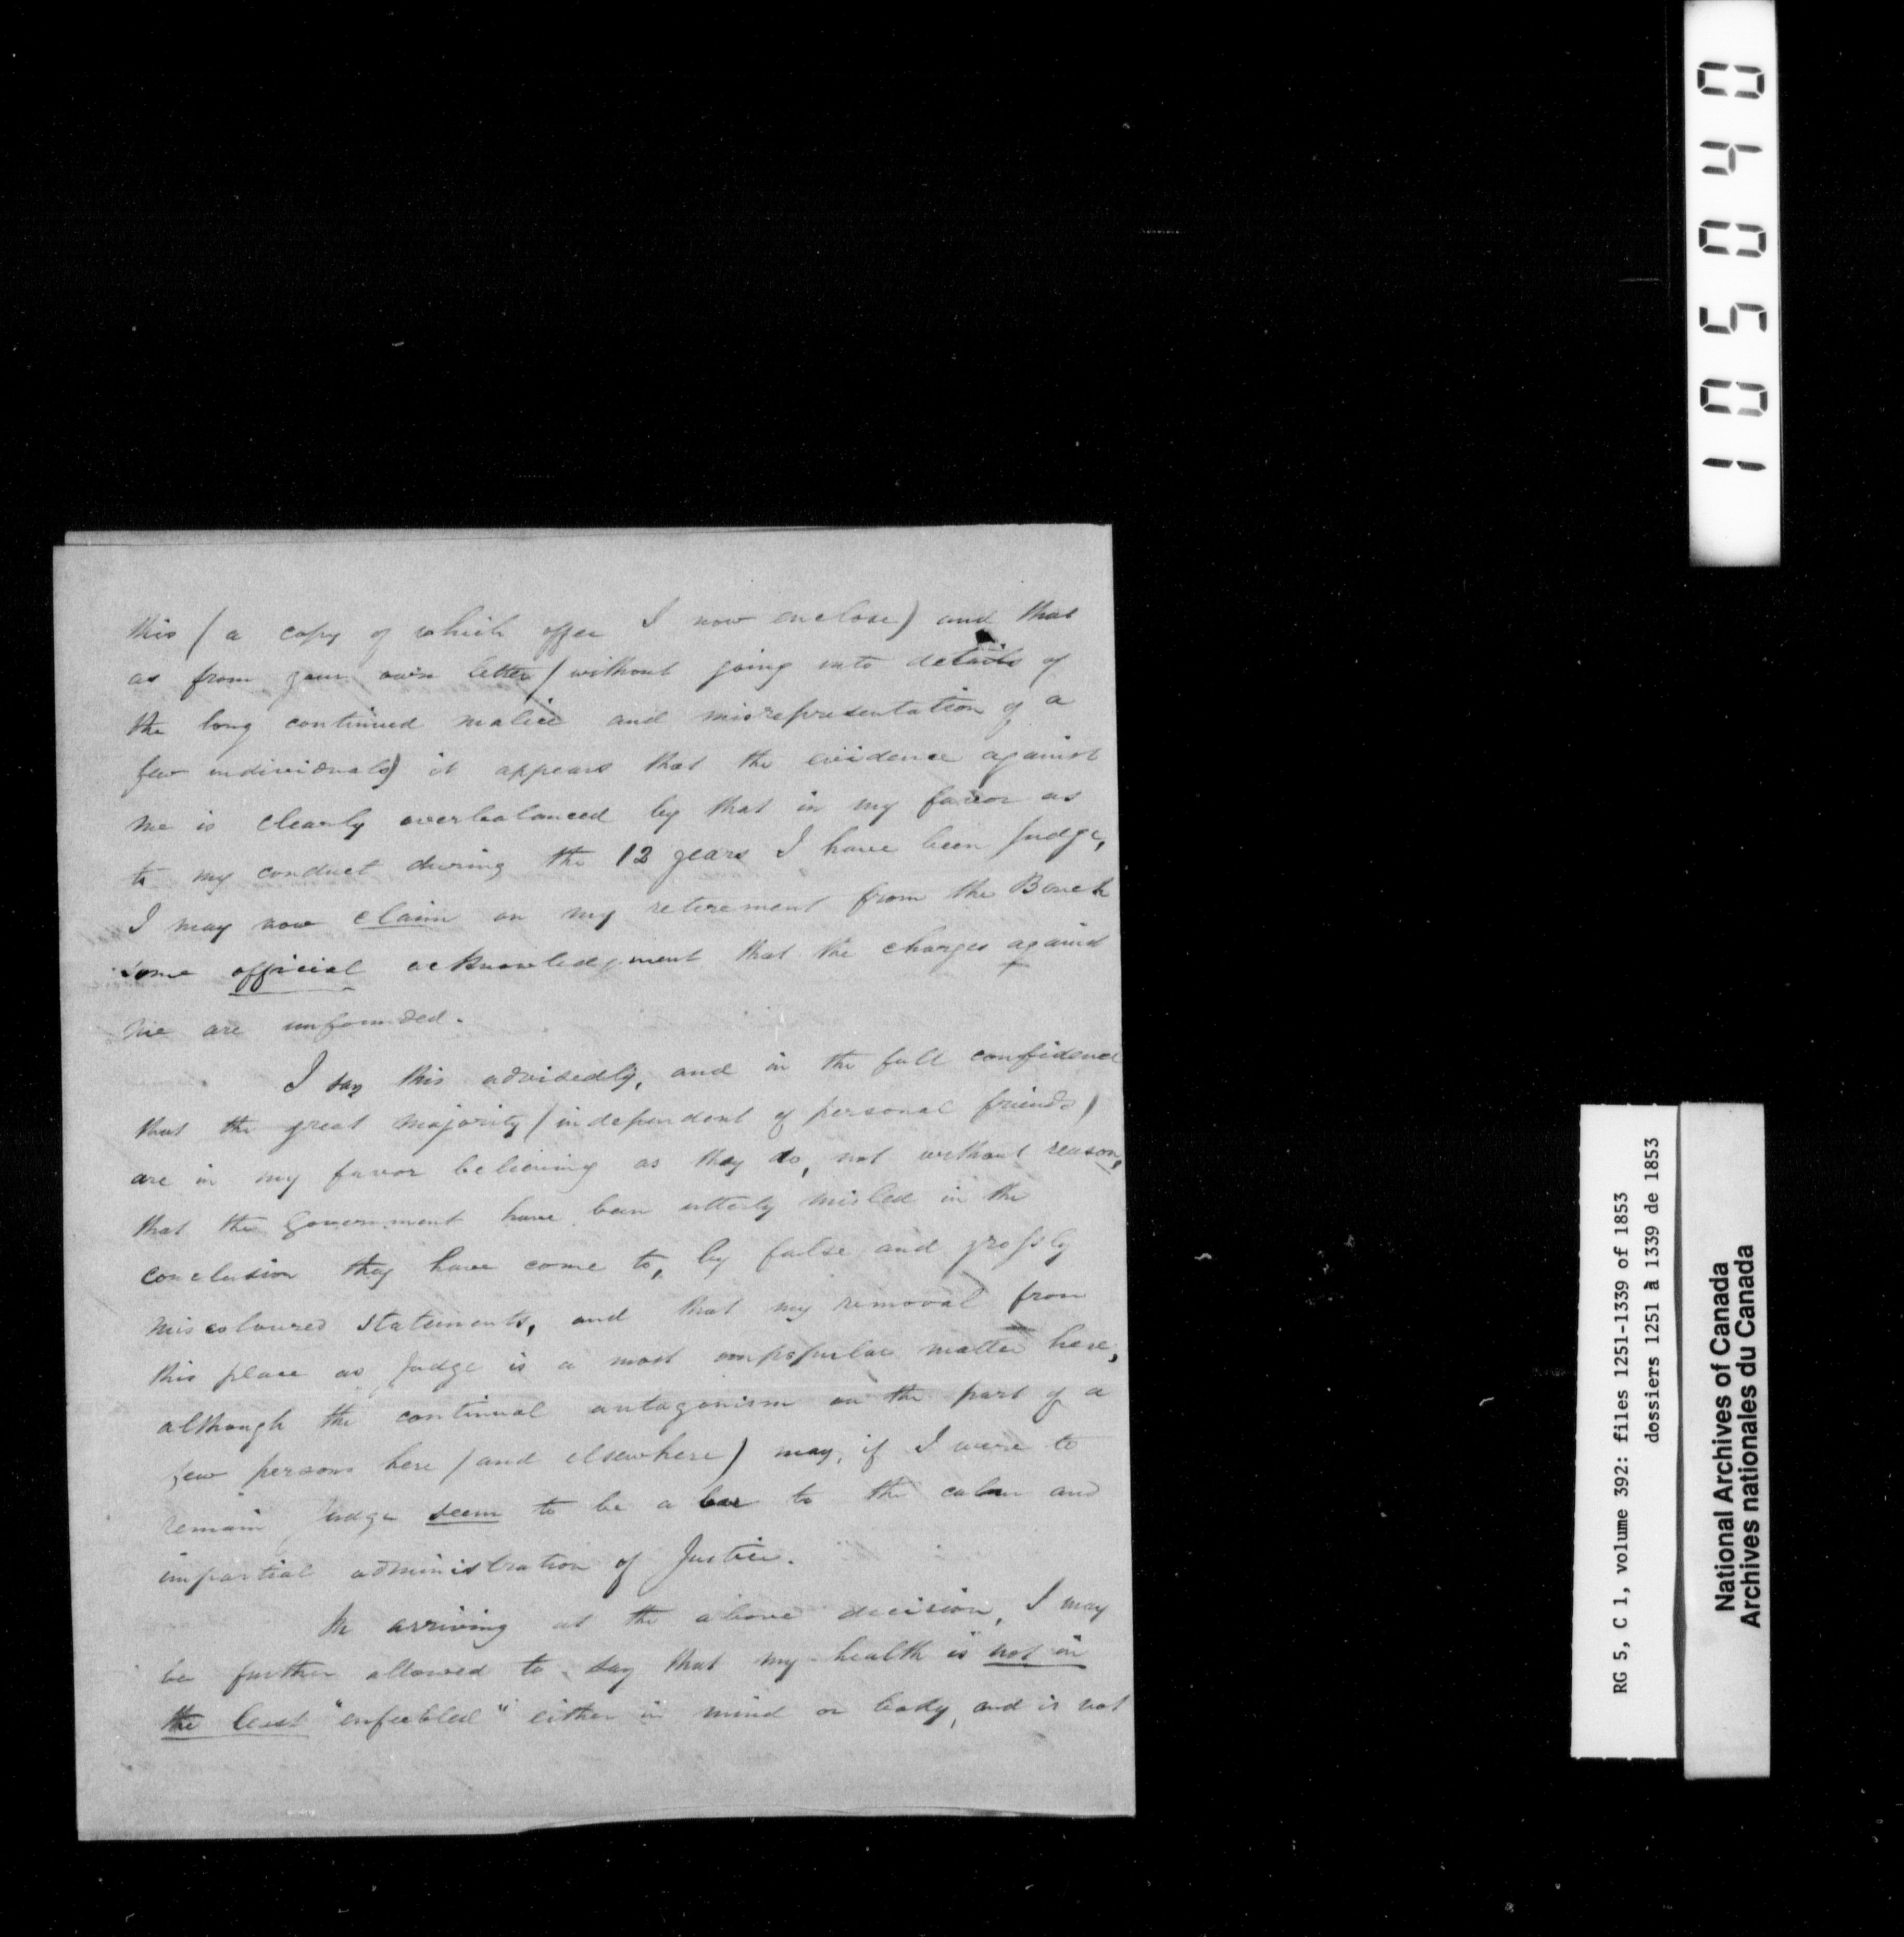 this (a copy of which offer I now enclose) and that
as from your own letter (without going into details of
the long continued malice and misrepresentation of a
few individuals) it appears that the evidence against
me is clearly overbalanced by that in my favor as
to my conduct during the 12 years I have been Judge,
I may now claim on my retirement from the Bench
some official acknowledgment that the charges against
me are unfounded.
I say this advisedly, and in the full confidence
that the great majority (independent of personal friends)
are in my favor believing as they do, not without reason,
that the Government have been utterly misled in the
conclusion they have come to, by false and grossly
miscoloured statements, and that my removal from
this place as Judge is a most unpopular matter here,
although the continual antagonism on the part of a
few persons here (and elsewhere) may, if I were to
remain Judge seem to be a bar to the calm and
impartial administration of Justice.
In arriving at the above decision, I may
be further allowed to say that my health is not in
the least "enfeebled" either in mind or body, and is not
105040
RG 5, C 1, volume 392: files 1251-1339 of 1853
dossiers 1251 à 1339 de 1853
National Archives of Canada
Archives nationales du Canada